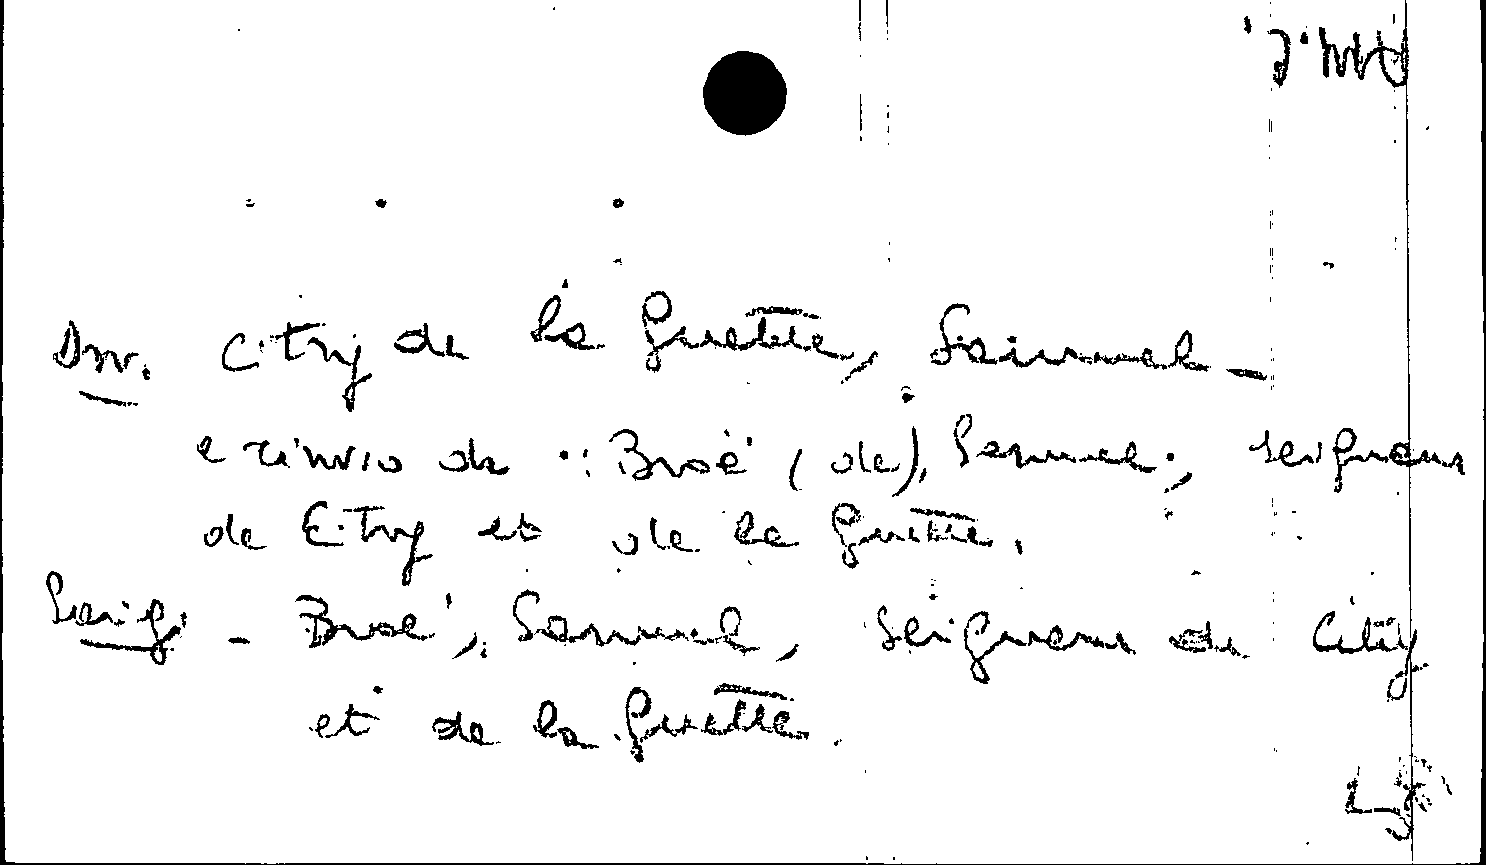 Inv. Citry de la Guette, Samuel -
e rinvio da : Broë (de), Samuel, seigneur
de Citry et de la Guette.
Seig. - Broé, Samuel, seigneur de Citry
et de la Guette.